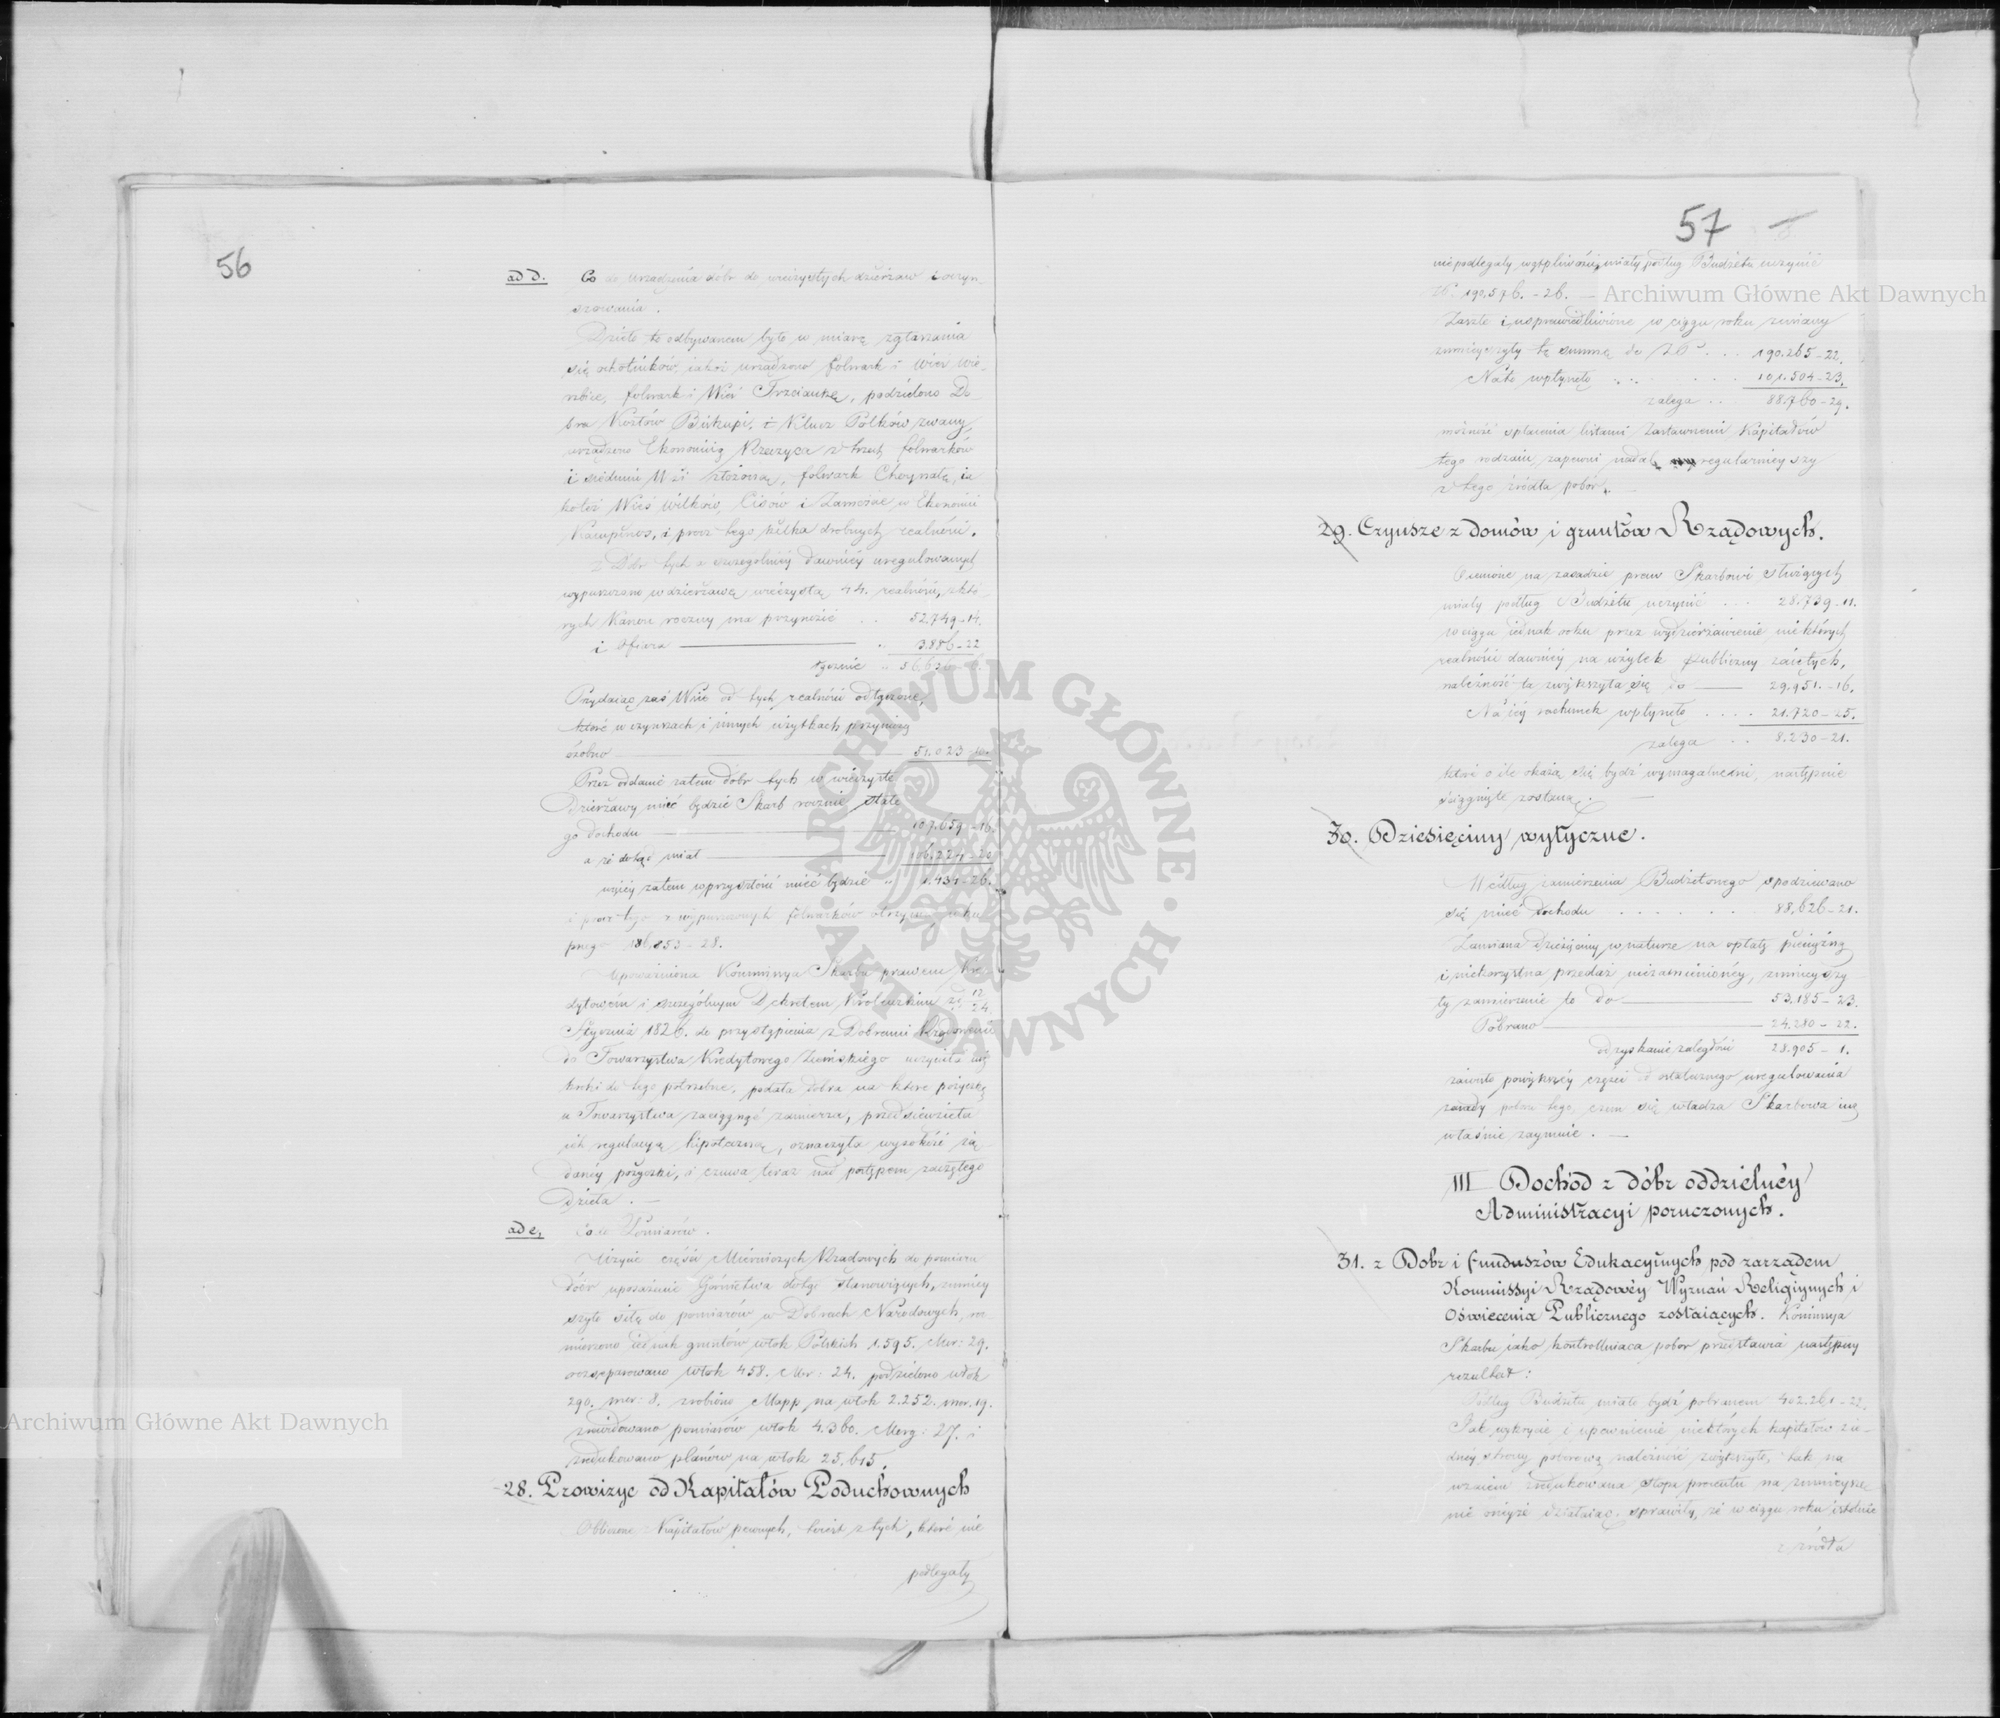 56
ad d. Co do urządzenia dóbr do wieczystych dzierzaw i oczyn-
szowania.
Dzieło to odbywanem było w miarę zgłaszania
się ochotników, jakoż urządzono folwark i Wieś Wie-
rzbie, folwark i Wieś Trzciankę, podzielono Do-
bra Kozłów Biskupi, i Klucz Polków zwany,
urządzono Ekonomiią Rzeczyca z trzech folwarków
i siedmiu Wsi złożoną, folwark Cheynatę, ia
koteż Wieś Wilków, Cisów i Zamoście w Ekonomii
Kampinos, i procz tego kilka drobnych realności.
Z Dóbr tych a szczególniéj dawniéj uregulowanych
wypuszczono w dzierżawę wieczystą 44. realności, z któ-
rych Kanon roczny ma przynosić . . 52.749-14.
i Ofiara — " 3.886-22
łącznie " 56.636-6.
Przydaiąc zaś Wsie od tych realności odłączone,
które w czynszach i innych użytkach przynioszą
osobno — 51.023-10.
Przez oddanie zatem dóbr tych w wieczyste
Dzierżawy mieć będzie Skarb rocznie stałe
go dochodu — 107.659-16.
a że dotąd miał — 106.224-20
więcéj zatem w przyszłości mieć będzie " 1.434-26.
i procz tego z wypuszczonych folwarków otrzyma wku
pnego 186,853-28.
Upoważniona Kommissya Skarbu prawem Kre-
dytowém i szczególnym Dekretem Królewskim z d. 12/24
Stycznia 1826. do przystąpienia z Dobrami Rządowemi
do Towarzystwa Kredytowego Ziemskiégo uczyniła
kroki do tego potrzebne, podała dobra na które pożyczkę
u Towarzystwa zaciągnąć zamierza, przedsiewzięła
ich regulacyą hipoteczną, oznaczyła wysokość żą-
danéy pożyczki, i czuwa teraz nad postępem zaczętego
Dzieła. —
ad e, Co do Pomiarów.
Użycie części Mierniczych Rządowych do pomiaru
dóbr uposażenie Górnictwa dotąd stanowiących, zmniey
szyło siłę do pomiarów w Dobrach Narodowych, roz
mierzono iednak gruntów włok Polskich 1.595. Mor: 29.
rozseparowano włok 458. Mor: 24. podzielono włok
290. mor: 8. zrobiono Mapp na włok 2.252. mor. 19.
zrewidowano pomiarów włok 4.360. Morg: 27. i
zredukowano planów na włok 25.615.
28. Prowizye od Kapitałów Poduchownych
Obliczone z Kapitałów pewnych, tudzież z tych, które nie
podlegały
57
nie podlegały wątpliwości, miały podług Budżetu uczynić
Złp. 190,576.-26. —
Zaszłe i usprawiedliwione w ciągu roku zmiany
zmnieyszyły tę summę do Złp . . . 190.265-22.
Na to wpłynęło . . . . . 101.504-23.
zalega . . . 88.760-29.
możność spłacenia listami Zastawnemi Kapitałów
tego rodzaiu, zapewni nadal regularnieyszy
z tego źródła pobór. —
29. Czynsze z domów i gruntów Rządowych.
Ocenione na zasadzie praw Skarbowi służących
miały podług Budżetu uczynić . . . 28.739-11.
w ciągu iednak roku przez wydzierżawienie niektórych
realności dawniéy na użytek publiczny zaiętych,
należność ta zwiększyła się do — 29.951.-16.
Na iéy rachunek wpłynęło . . . . 21.720-25.
zalega . . . 8.230-21.
które o ile okażą się bydź wymagalnemi, następnie
ściągnięte zostaną. —
30. Dziesięciny wytyczne.
Według zamierzenia Budżetowego spodziewano
się mieć dochodu . . . . . . . 88,626-21.
Zamiana Dziesięciny w naturze na opłatę pieniężną
i niekorzystna przedaż niezamienionéy, zmnieyszy-
ły zamierzenie to do — 53.185-23.
Pobrano — 24.280-22.
odzyskanie zaległości 28.905-1.
zawisło powiększéy części od ostatecznego uregulowania
zasady poboru tego, czem się władza Skarbowa iuż
właśnie zaymuie. —
III Dochód z dóbr oddzielnéy
Administracyi poruczonych.
31. z Dóbr i funduszów Edukacyinych pod zarządem
Kommissyi Rządowéy Wyznań Religiynych i
Oświecenia Publicznego zostaiących. Kommissya
Skarbu iako kontrolluiąca pobór przedstawia następny
rezultat:
Podług Budżetu miało bydź pobranem 402.261-22.
Jak wykrycie i upewnienie niektórych kapitałów z ie-
dnéy strony poborową należność zwiększyło, tak na
wzaiem zredukowana stopa procentu na zmnieysze-
nie oneyże działaiąc, sprawiły, że w ciągu roku istotnie
z źródła
Archiwum Główne Akt Dawnych
Archiwum Główne Akt Dawnych
ARCHIWUM GŁÓWNE · AKT DAWNYCH ·